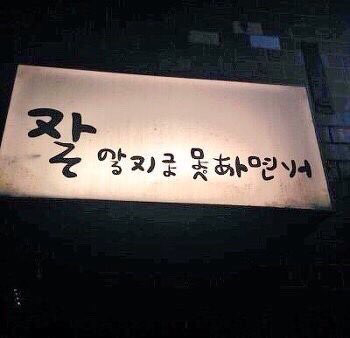 잘 알지도 못하면서